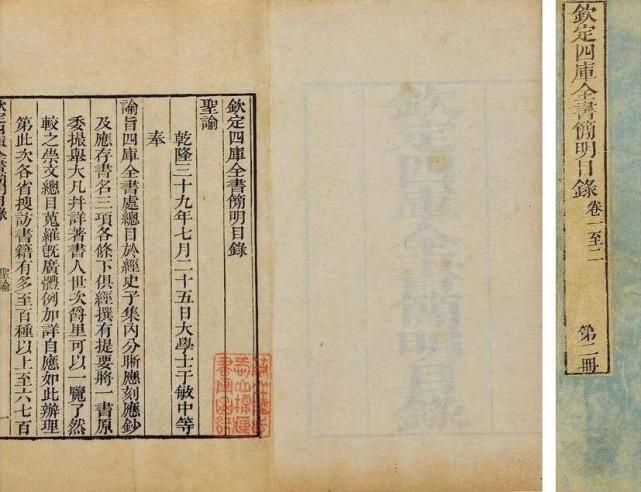 欽定四庫全書簡明目錄
聖諭
乾隆三十九年七月二十五日大學士于敏中等
奉
諭旨四庫全書處總目於經史子集內分晰應刻應鈔
及應存書名三項各條下俱經撰有提要將一書原
委撮舉大凡并詳著書人世次爵里可以一覽了然
較之崇文總目蒐羅旣廣體例加詳自應如此辦理
第此次各省搜訪書籍有多至百種以上至六七百
欽定四庫全書簡明目錄
聖諭
欽定四庫全書簡明目錄
欽定四庫全書簡明目錄 卷一至二 第二冊